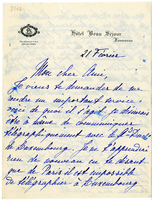 Hôtel Beau Séjour
21 Février
Mon cher Ami,
Je viens te demander de me
rendre un important service
voici de quoi il s'agit : je désirerais
être à même de communiquer
télégraphiquement avec le
de Luxembourg. Je
de nouveau en ce
que de Paris il est impossible
de télégraphier à Luxembourg.